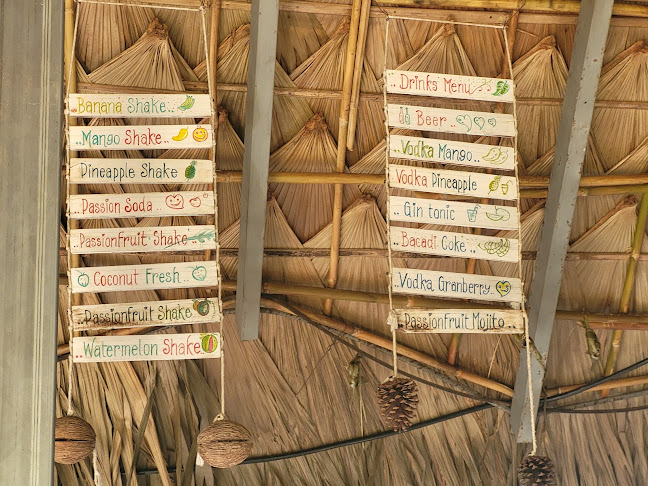 Banana Shake
Mango Shake
Pineapple Shake
Passion Soda
Passionfruit Shake
Coconut Fresh
Passionfruit Shake
Watermelon Shake
Drinks Menu
Beer
Vodka Mango
Vodka Pineapple
Gin tonic
Bacadi Coke
Vodka Granberry
Passionfruit Mojito